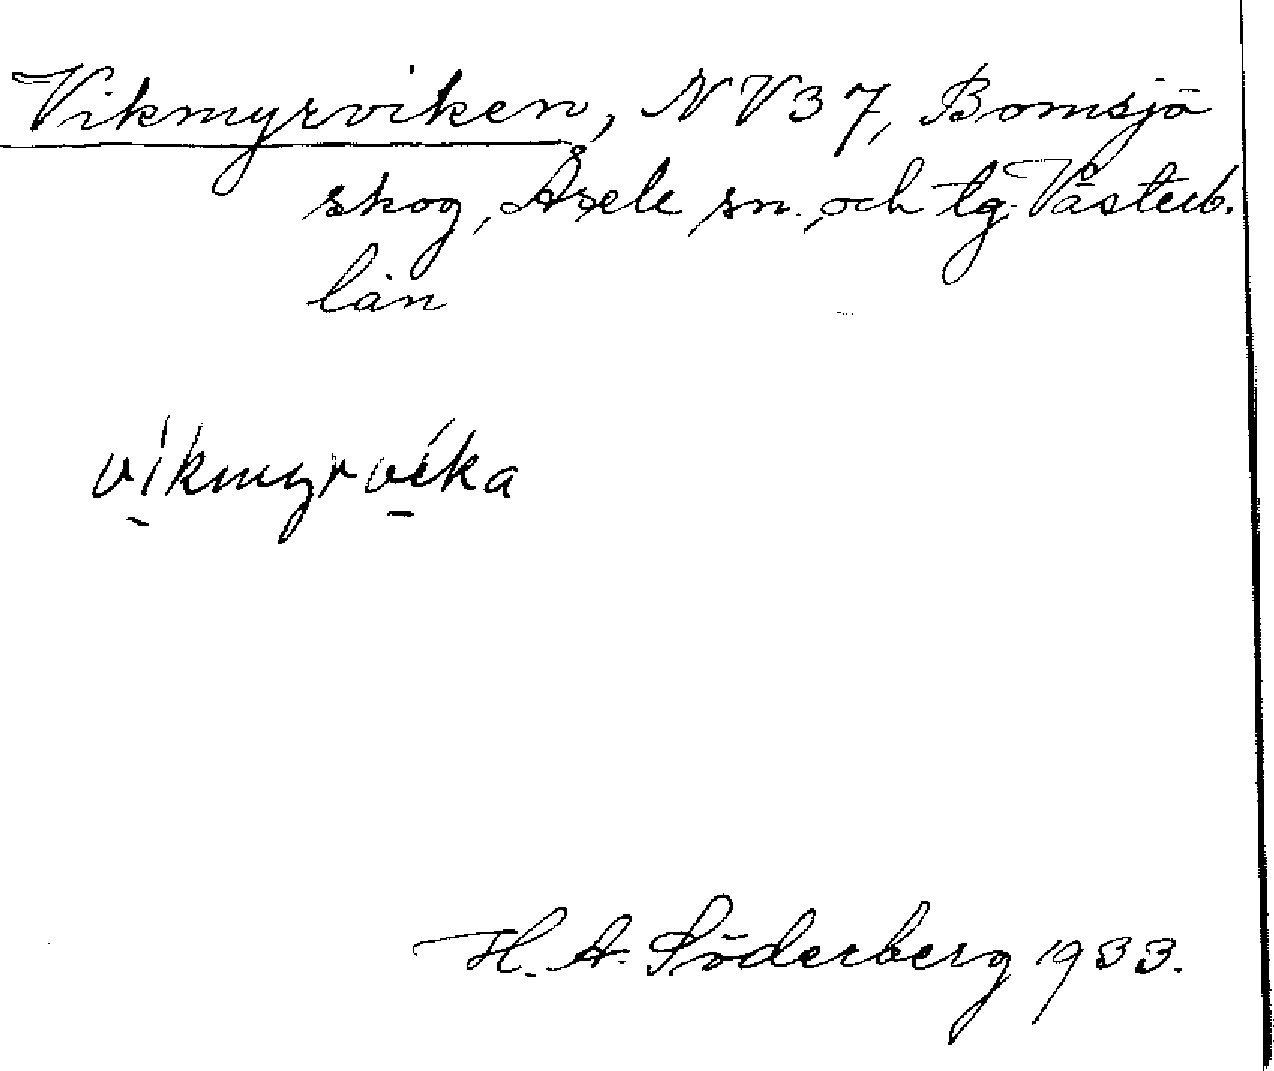 Vikmyrviken, NV37, Bomsjö
skog, Åsele sn. och tg. Västerb.
län
vikmyrvika
H. A. Söderberg 1933.